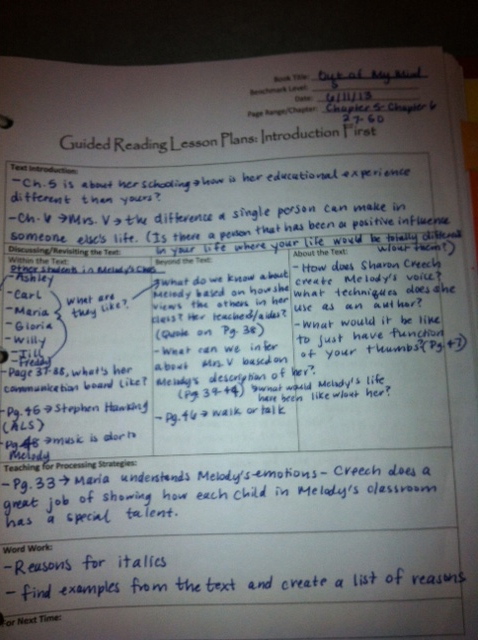 Book Title: Out of My Mind
Benchmark Level: S
Date: 6/11/13
Page Range/Chapter: Chapter 5-Chapter 6
27-50
Guided Reading Lesson Plans: Introduction First
Text Introduction:
- Ch. 5 is about her schooling → how is her educational experience
different than yours?
- Ch. 6 → Mrs. V → the difference a single person can make in
someone else's life. (Is there a person that has been a positive influence
in your life where your life would be totally different
w/out them?)
Discussing/Revisiting the Text:
Within the Text:
Other students in Melody's Class
- Ashley
- Carl
- Maria
- Gloria
- Willy
- Jill
- Freddy
What are
they like?
- Page 37-38, what's her
communication board like?
- Pg. 46 → Stephen Hawking
(ALS)
- Pg. 48 → music is color to
Melody
Beyond the Text:
- What do we know about
Melody based on how she
views the others in her
class? Her teacher/aides?
(Quote on Pg. 38)
- What can we infer
about Mrs. V based on
Melody's description of her?
(Pg. 39-44) → What would Melody's life
have been like w/out her?
- Pg. 46 → walk or talk
About the Text:
- How does Sharon Creech
create Melody's voice?
What techniques does she
use as an author?
- What would it be like
to just have function
of your thumbs? (Pg 47)
Teaching for Processing Strategies:
- Pg. 33 → Maria understands Melody's emotions - Creech does a
great job of showing how each child in Melody's classroom
has a special talent.
Word Work:
- Reasons for italics
- find examples from the text and create a list of reasons
For Next Time: